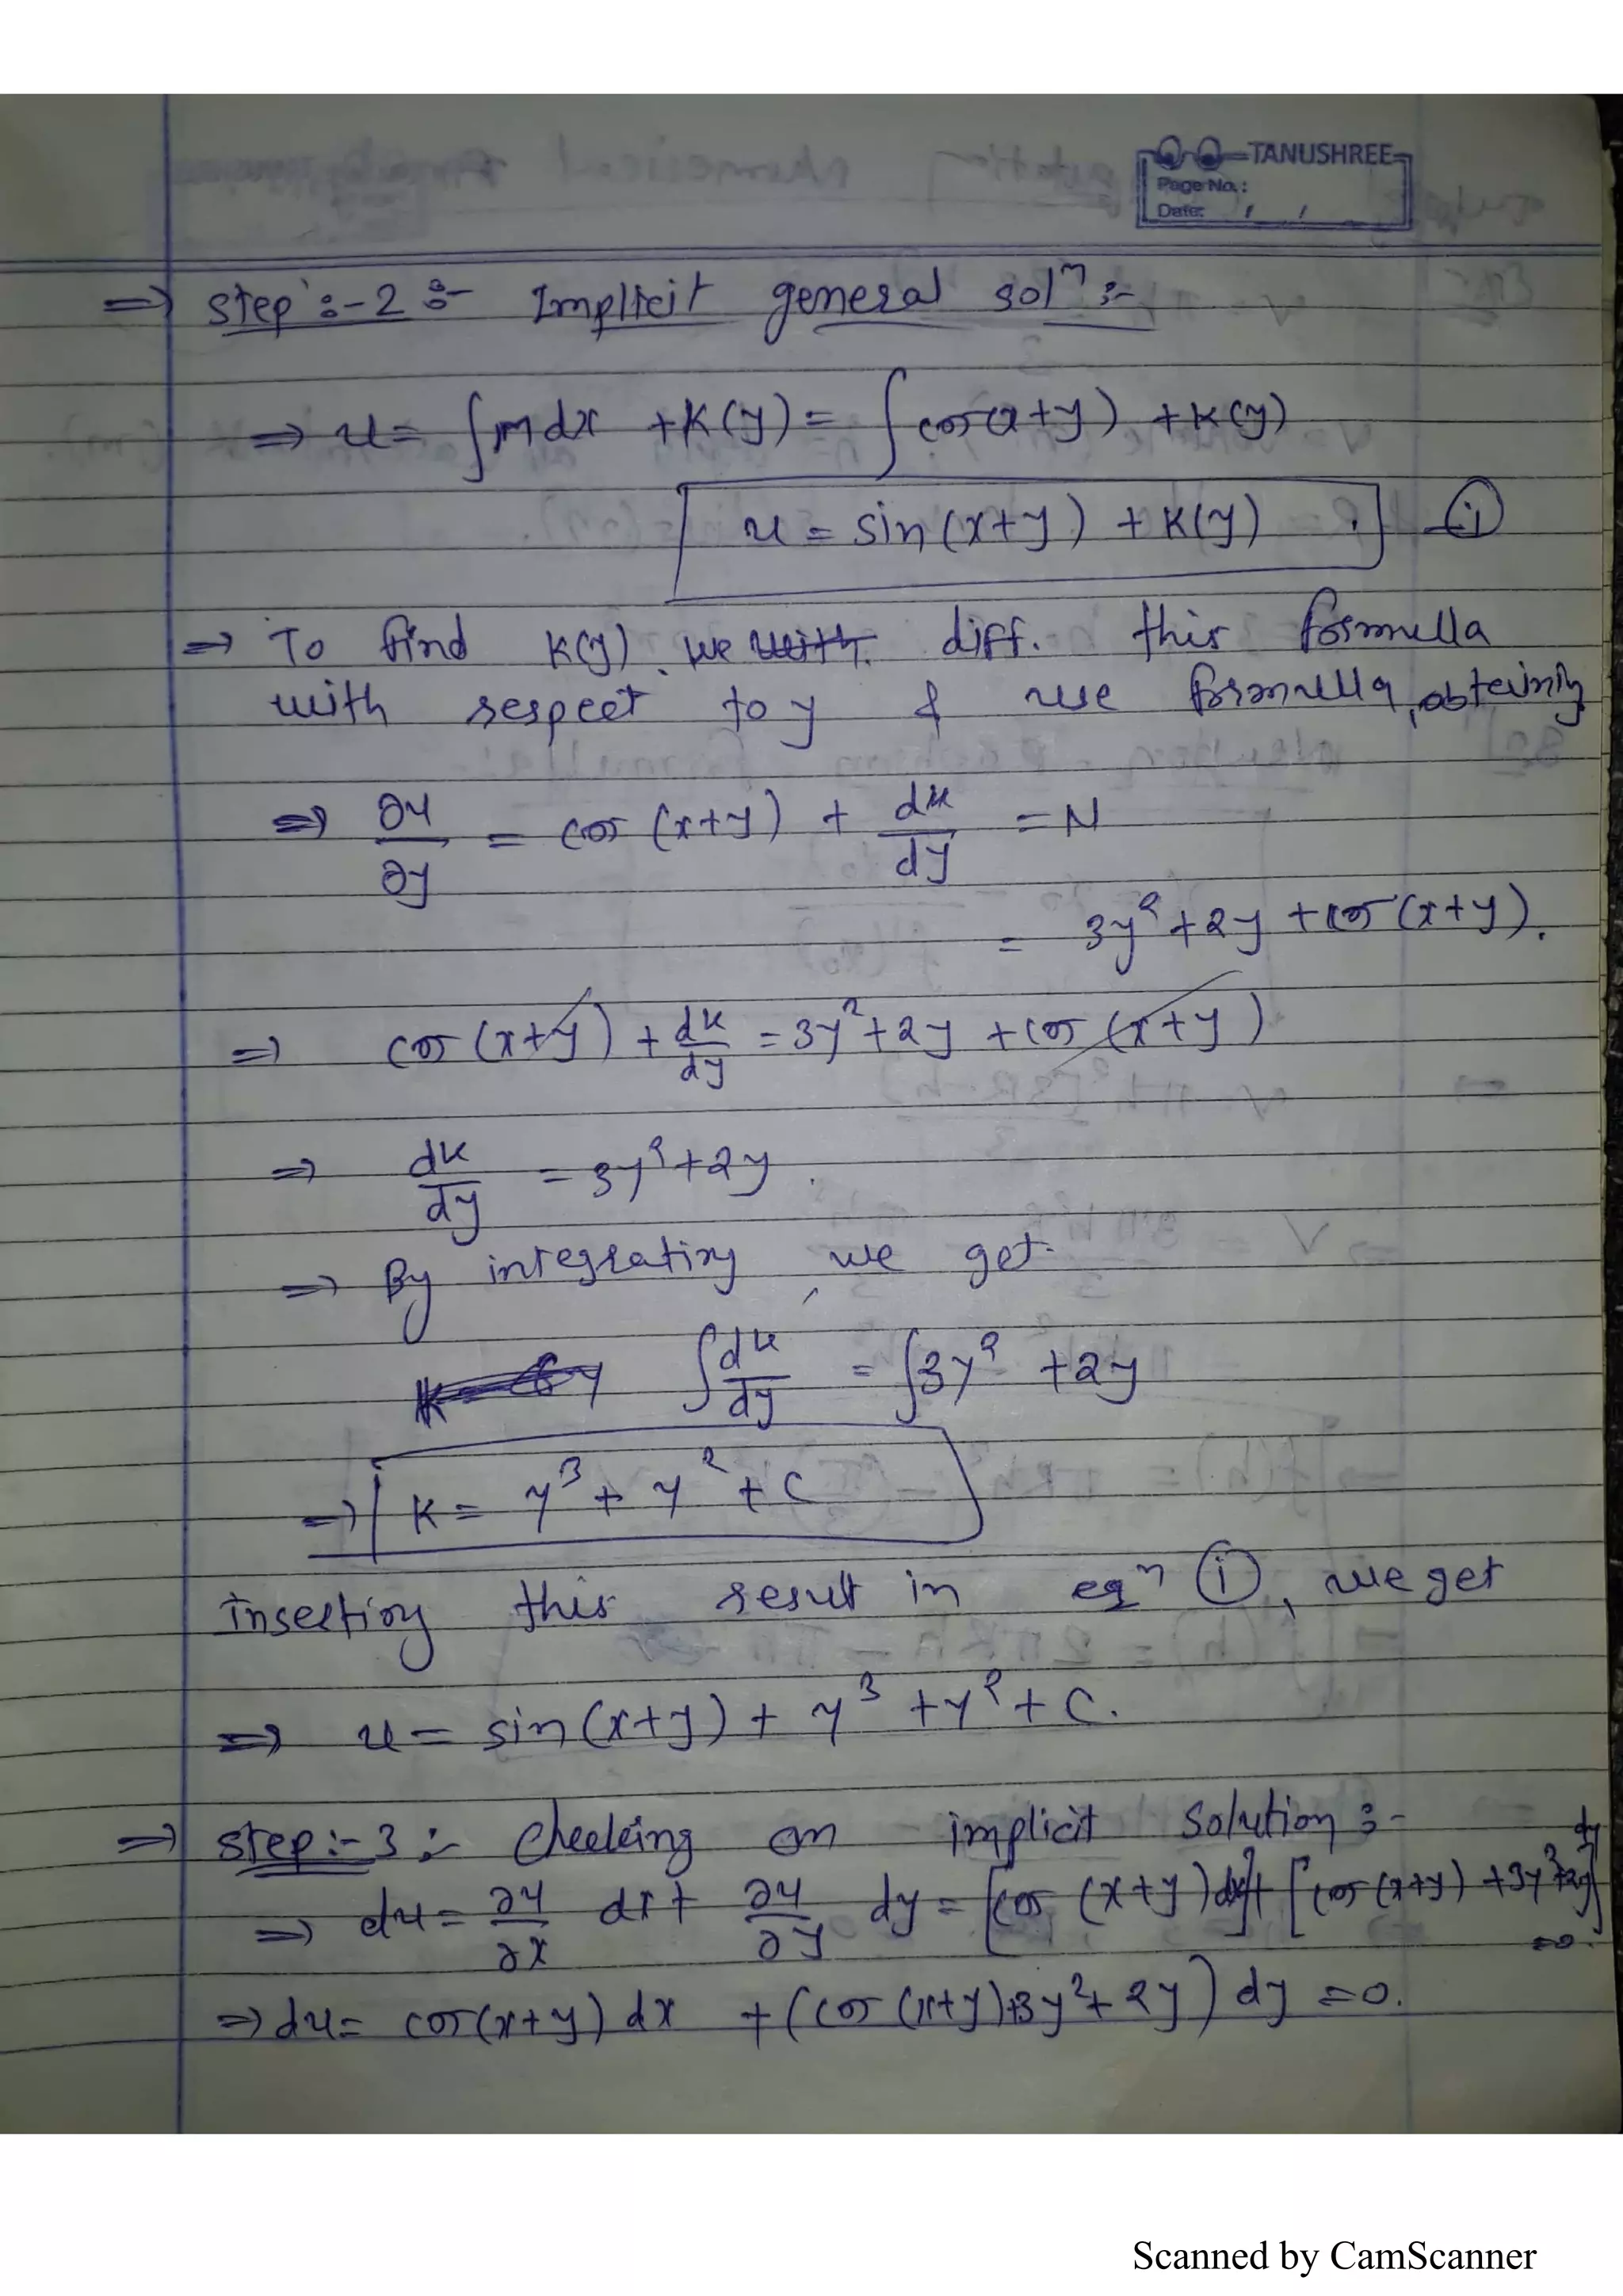 TANUSHREE
Page No.:
Date: / /
⇒ step :- 2 :- Implicit general solⁿ :-
⇒ u = ∫ M dx + K(y) = ∫ cos(x+y) + K(y)
u = sin(x+y) + K(y) . — (i)
⇒ To find K(y) we with diff. this formulla
with respect to y & use formulla, obtaining
⇒ ∂u/∂y = cos(x+y) + dk/dy = N
= 3y² + 2y + cos(x+y).
⇒ cos(x+y) + dk/dy = 3y² + 2y + cos(x+y)
⇒ dk/dy = 3y² + 2y .
⇒ By integrating, we get.
∫ dk/dy = ∫ 3y² + 2y
⇒ K = y³ + y² + C
Inserting this result in eqⁿ (i), we get
⇒ u = sin(x+y) + y³ + y² + C.
⇒ step :- 3 :- Checking on implicit solution :-
⇒ du = ∂u/∂x dx + ∂u/∂y dy = [cos(x+y) dx] + [cos(x+y) + 3y² + 2y] dy = 0.
⇒ du = cos(x+y) dx + (cos(x+y) + 3y² + 2y) dy = 0.
Scanned by CamScanner